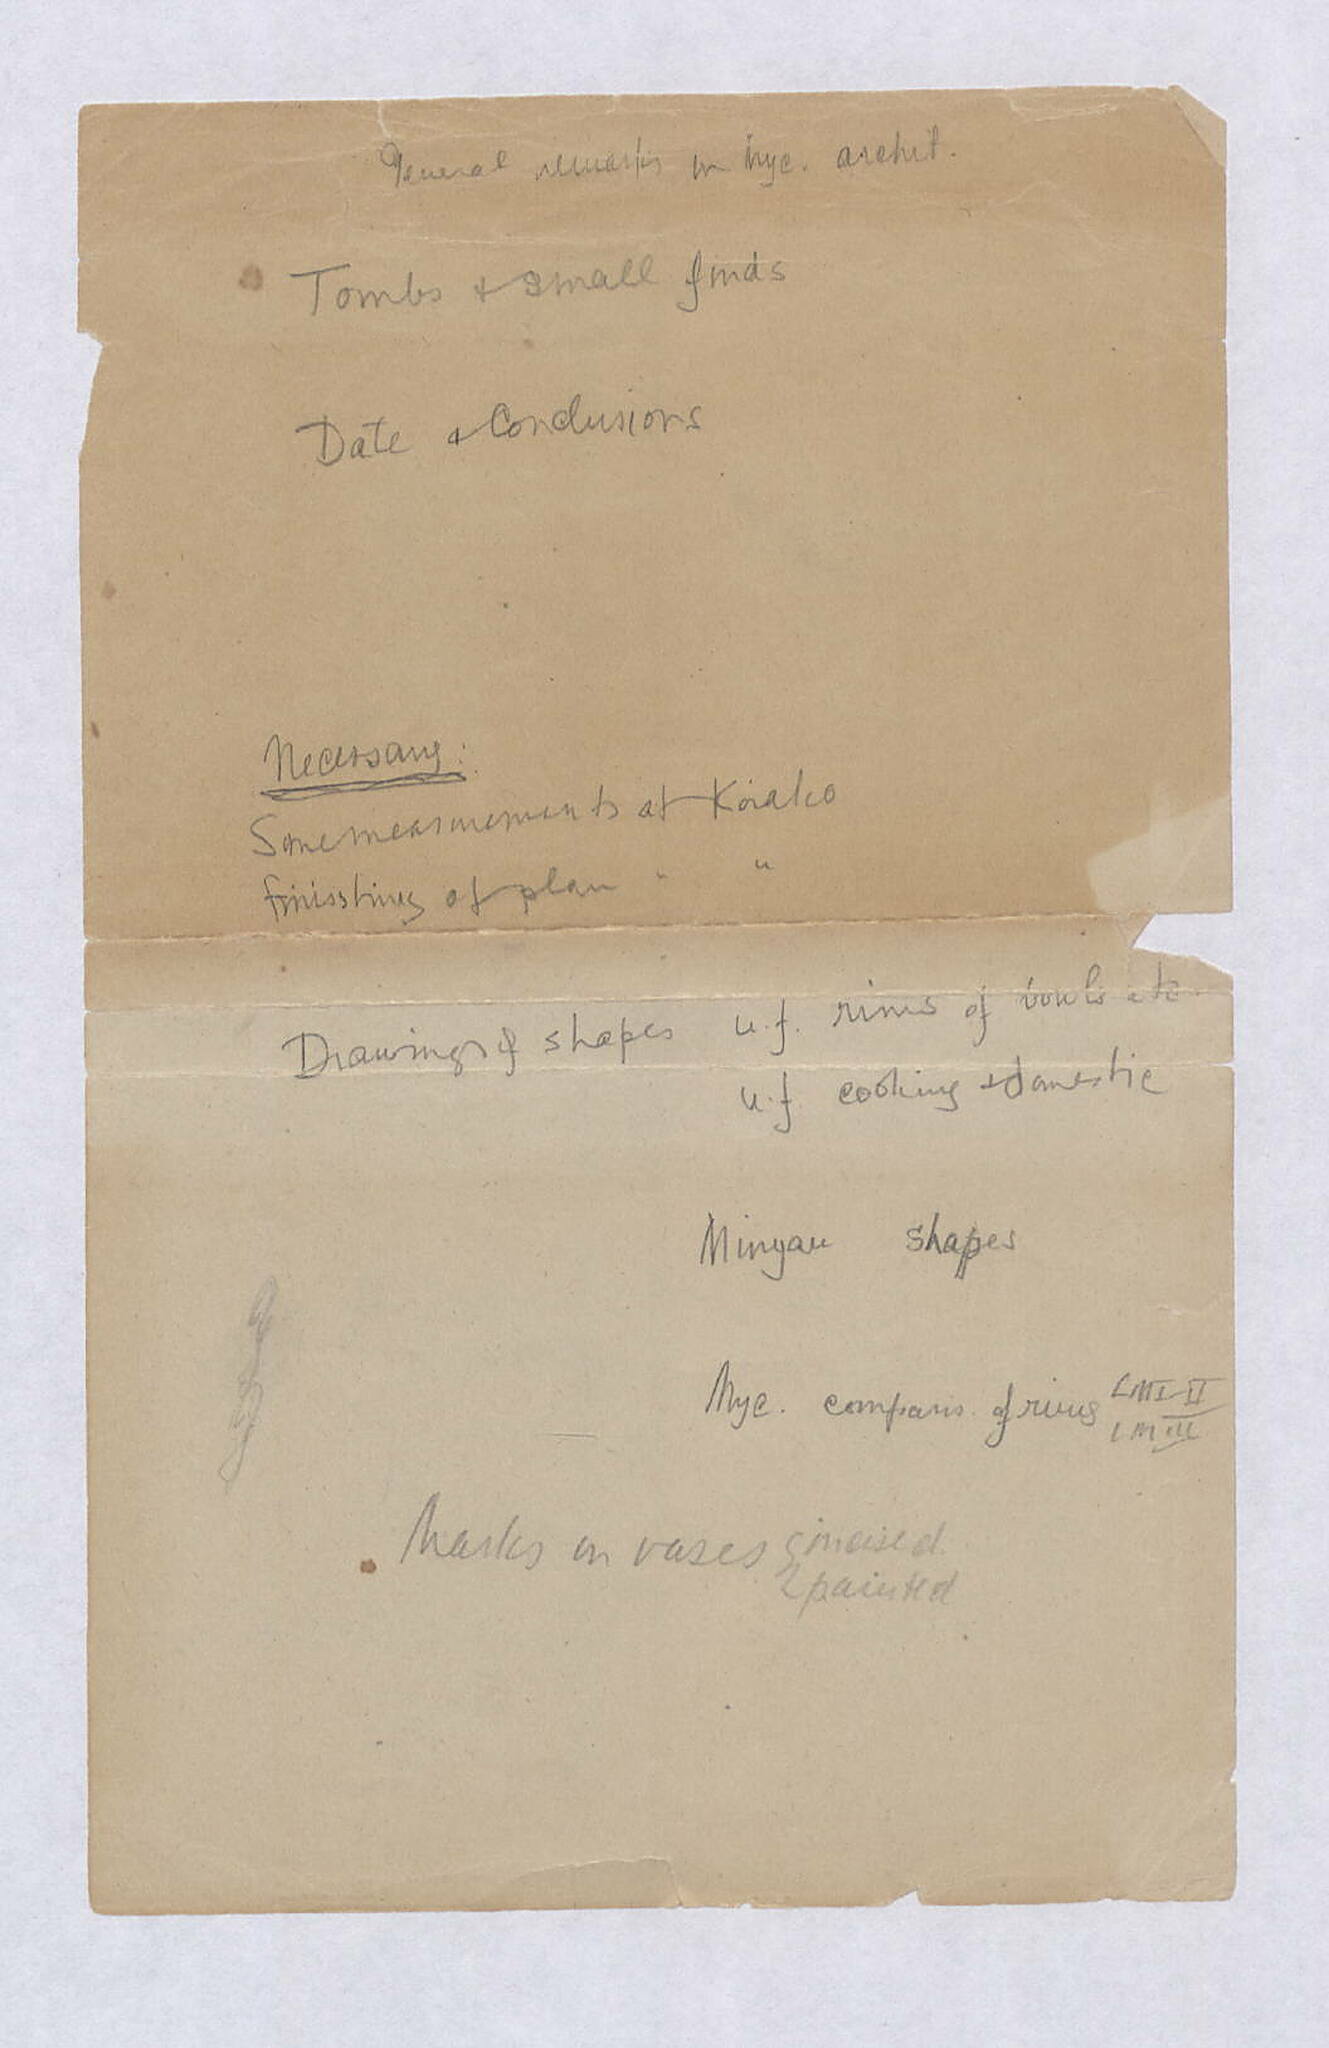 General remarks on Myc. archit.
Tombs & small finds
Date & Conclusions
Necessary:
Some measurements at Korako
finishing of plan " "
Drawings of shapes u.f. rims of bowls etc.
u.f. cooking & domestic
Minyan shapes
Myc. comparis. of rims LM I-II
LM III
Marks on vases incised
2 painted